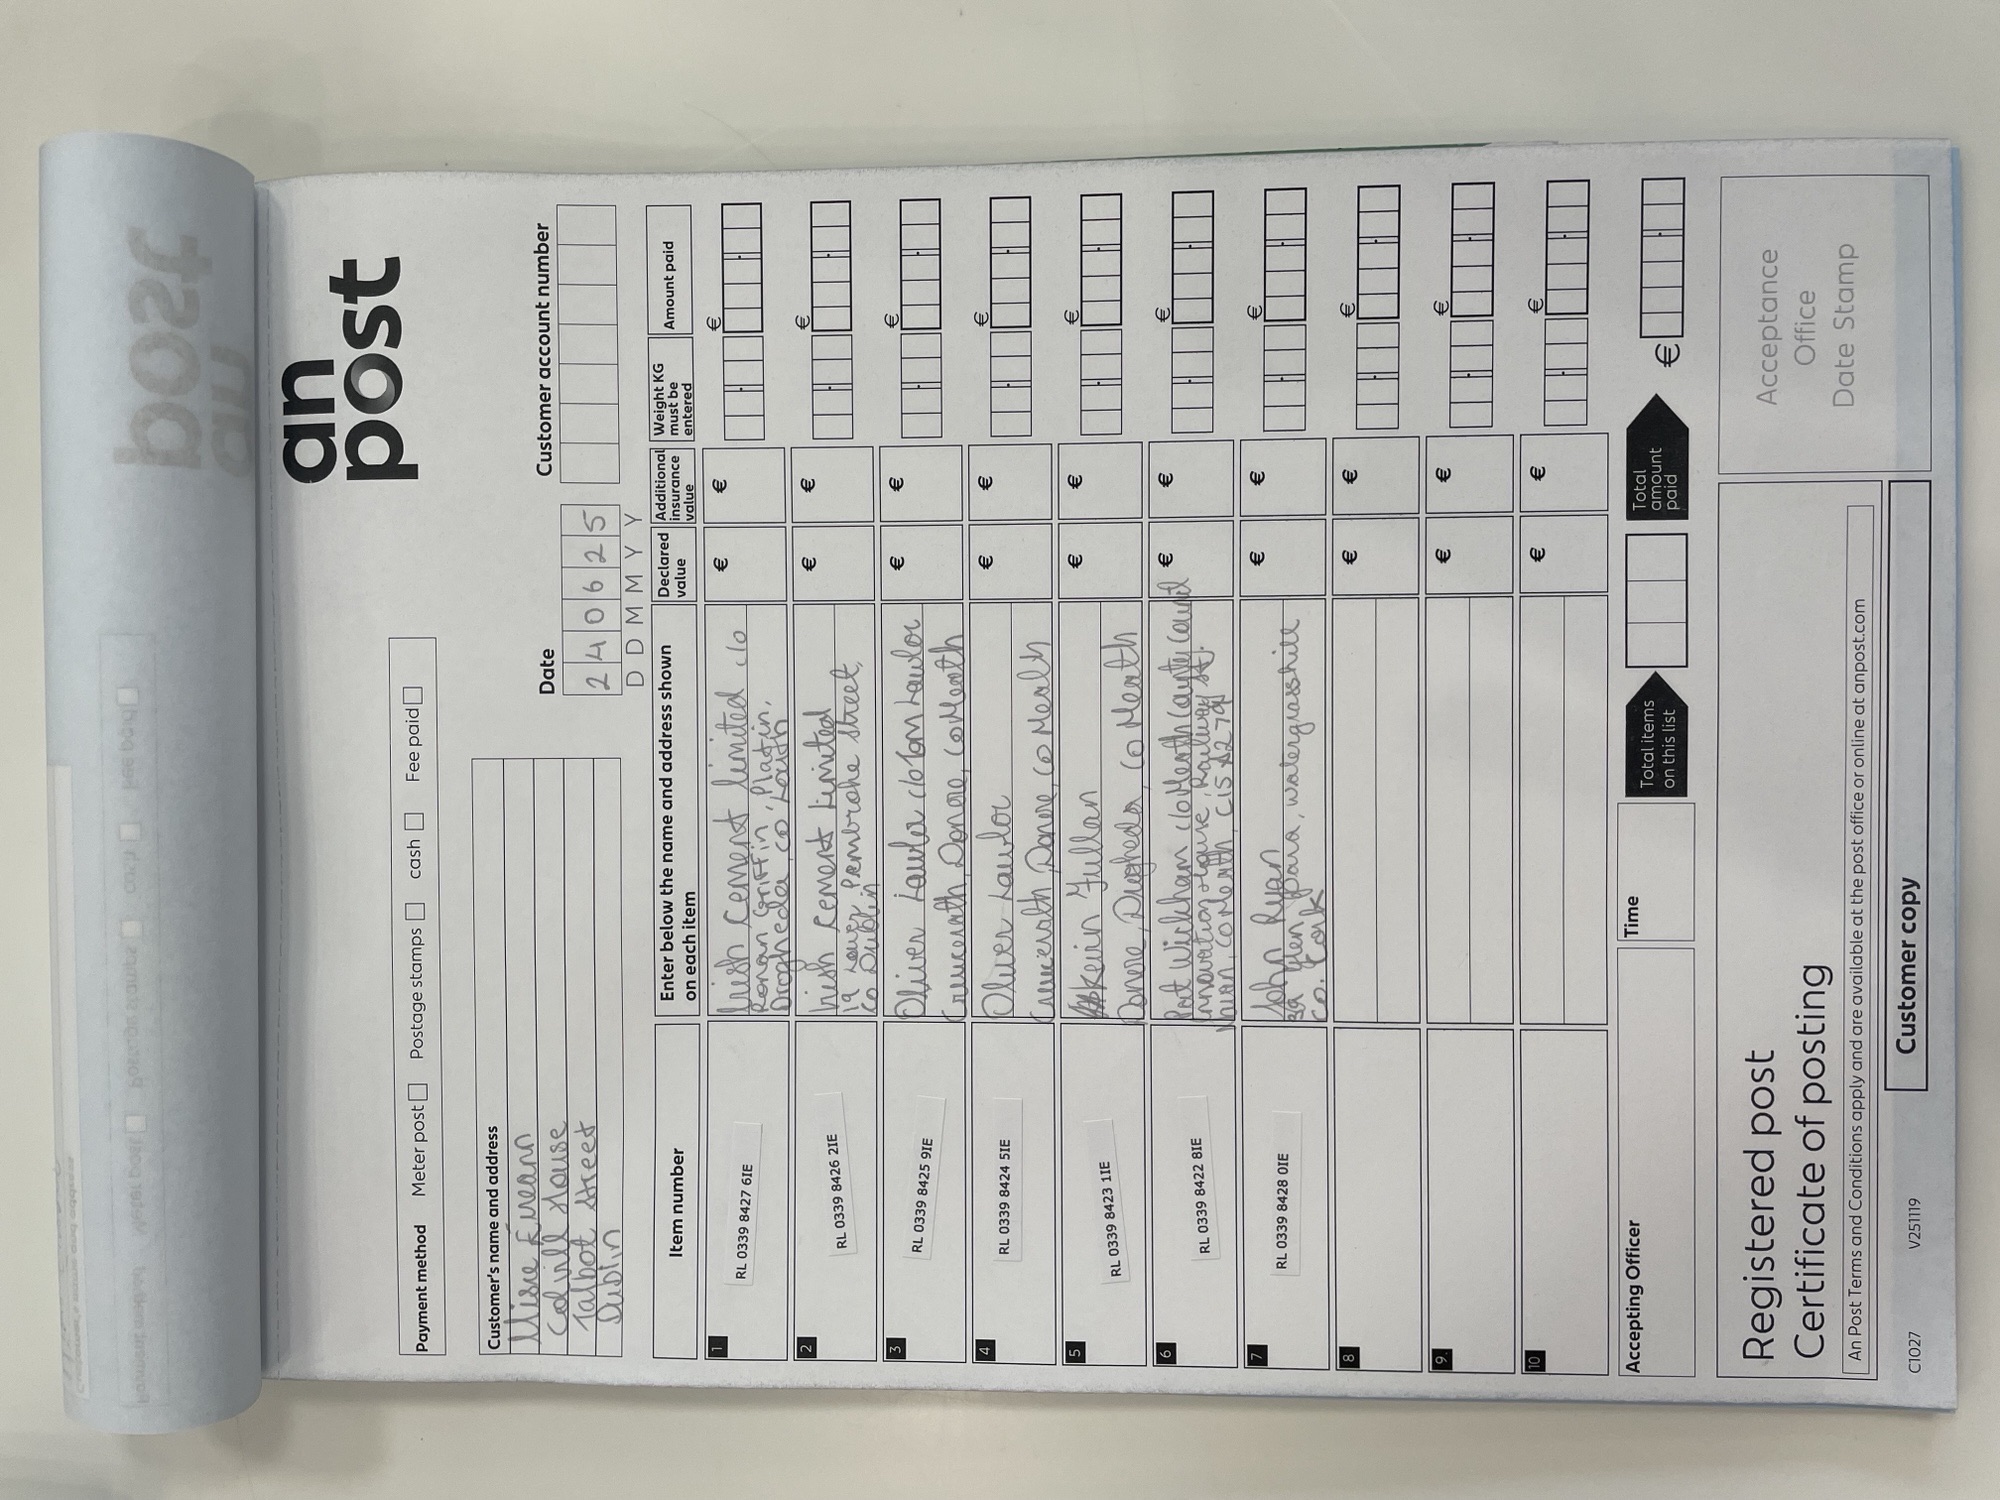 an
post
Payment method Meter post Postage stamps cash Fee paid
Date
Customer account number
Customer's name and address
Uisce Éireann
Colvill House
Talbot Street
Dublin
2 4 0 6 2 5
D D M M Y Y
Item number
Enter below the name and address shown
on each item
Declared
value
Additional
insurance
value
Weight KG
must be
entered
Amount paid
1
RL 0339 8427 6IE
Irish Cement limited c/o
Ronan Griffin, Platin,
Drogheda, Co Louth
€ € €
2
RL 0339 8426 2IE
Irish Cement Limited
19 Lower Pembroke Street,
Co Dublin
€ € €
3
RL 0339 8425 9IE
Oliver Lawlor c/o Tom Lawlor
Cruicerath, Donore, Co Meath
€ € €
4
RL 0339 8424 5IE
Oliver Lawlor
Cruicerath, Donore, Co Meath
€ € €
5
RL 0339 8423 1IE
Kevin Fullan
Donore, Drogheda, Co Meath
€ € €
6
RL 0339 8422 8IE
Wickham c/o Meath County Council
Innovation House, Railway St.
Navan, Co Meath, C15
€ € €
7
RL 0339 8428 0IE
John Ryan
Glen watergrasshill
Co. Cork
€ € €
8
€ € €
9.
€ € €
10
€ € €
Accepting Officer
Time
Total items
on this list
Total
amount
paid
€
Registered post
Certificate of posting
An Post Terms and Conditions apply and are available at the post office or online at anpost.com
Acceptance
Office
Date Stamp
C1027 V251119
Customer copy